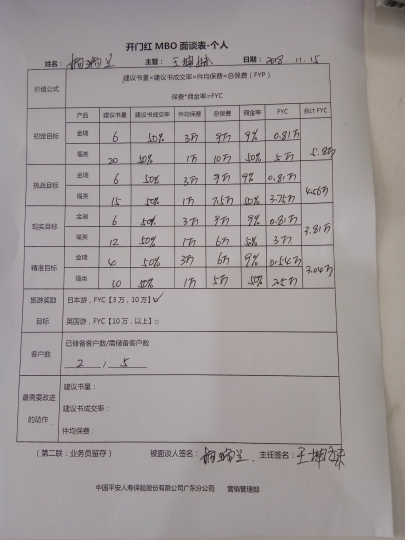 开门红 MBO 面谈表-个人
姓名： 主管： 王坤 日期： 2018.11.15
价值公式 建议书量*建议书成交率*件均保费=总保费（FYP）
保费*佣金率=FYC
产品 建议书量 建议书成交率 件均保费 总保费 佣金率 FYC 合计 FYC
初定目标 金瑞 6 50% 3万 9万 9% 0.81万
福类 20 50% 1万 10万 50% 5万 5.81万
挑战目标 金瑞 6 50% 3万 9万 9% 0.81万
福类 15 50% 1万 7.5万 50% 3.75万 4.56万
现实目标 金瑞 6 50% 3万 9万 9% 0.81万 3.81万
福类 12 50% 1万 6万 50% 3万
精准目标 金瑞 4 50% 3万 6万 9% 0.54万
福类 10 50% 1万 5万 50% 2.5万 3.04万
旅游奖励 日本游，FYC【3 万，10 万】✓
目标 英国游，FYC【10 万，以上】□
客户数 已储备客户数/需储备客户数
2 / 5
最需要改进 建议书量：
的动作 建议书成交率：
件均保费：
（第二联：业务员留存） 被面谈人签名： 主任签名： 王坤
中国平安人寿保险股份有限公司广东分公司 营销管理部